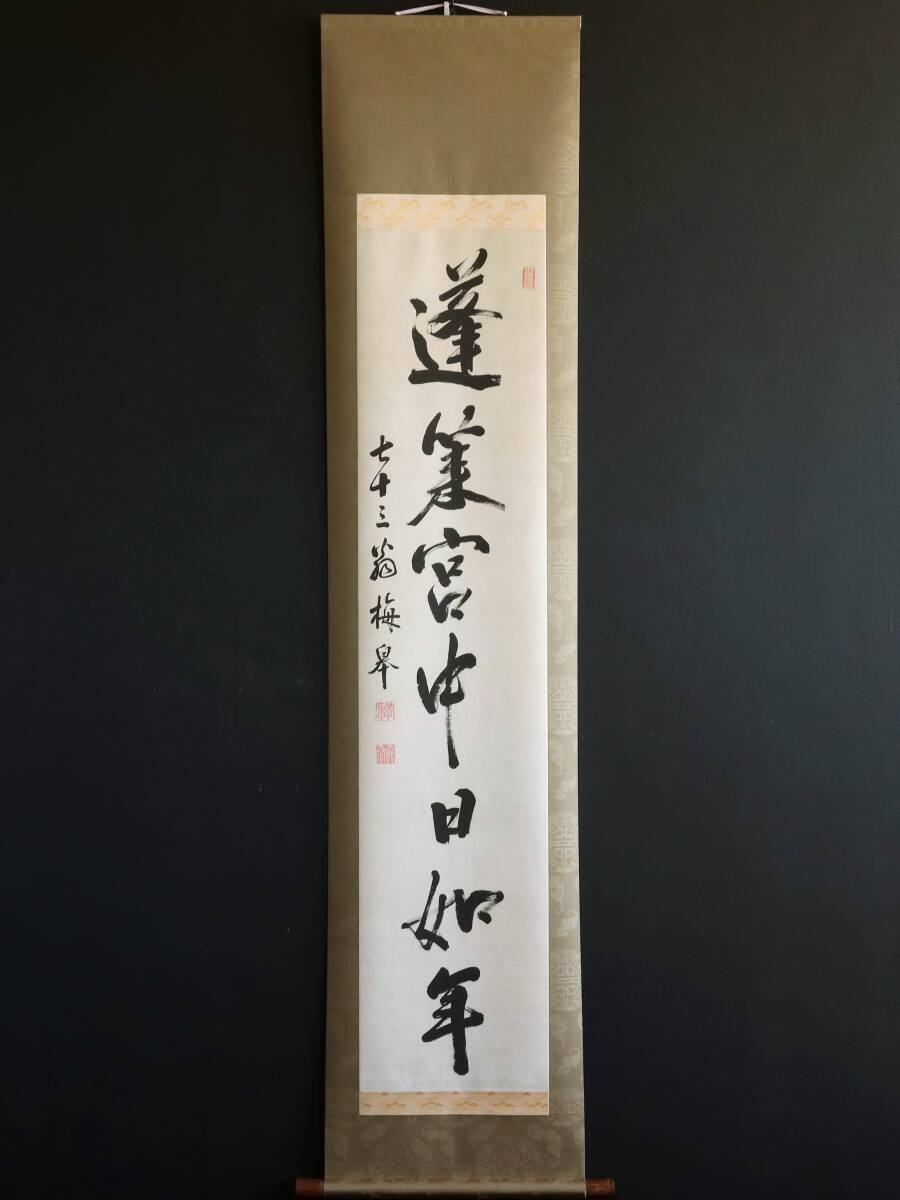 蓬莱宮中日如年
七十三翁梅皋